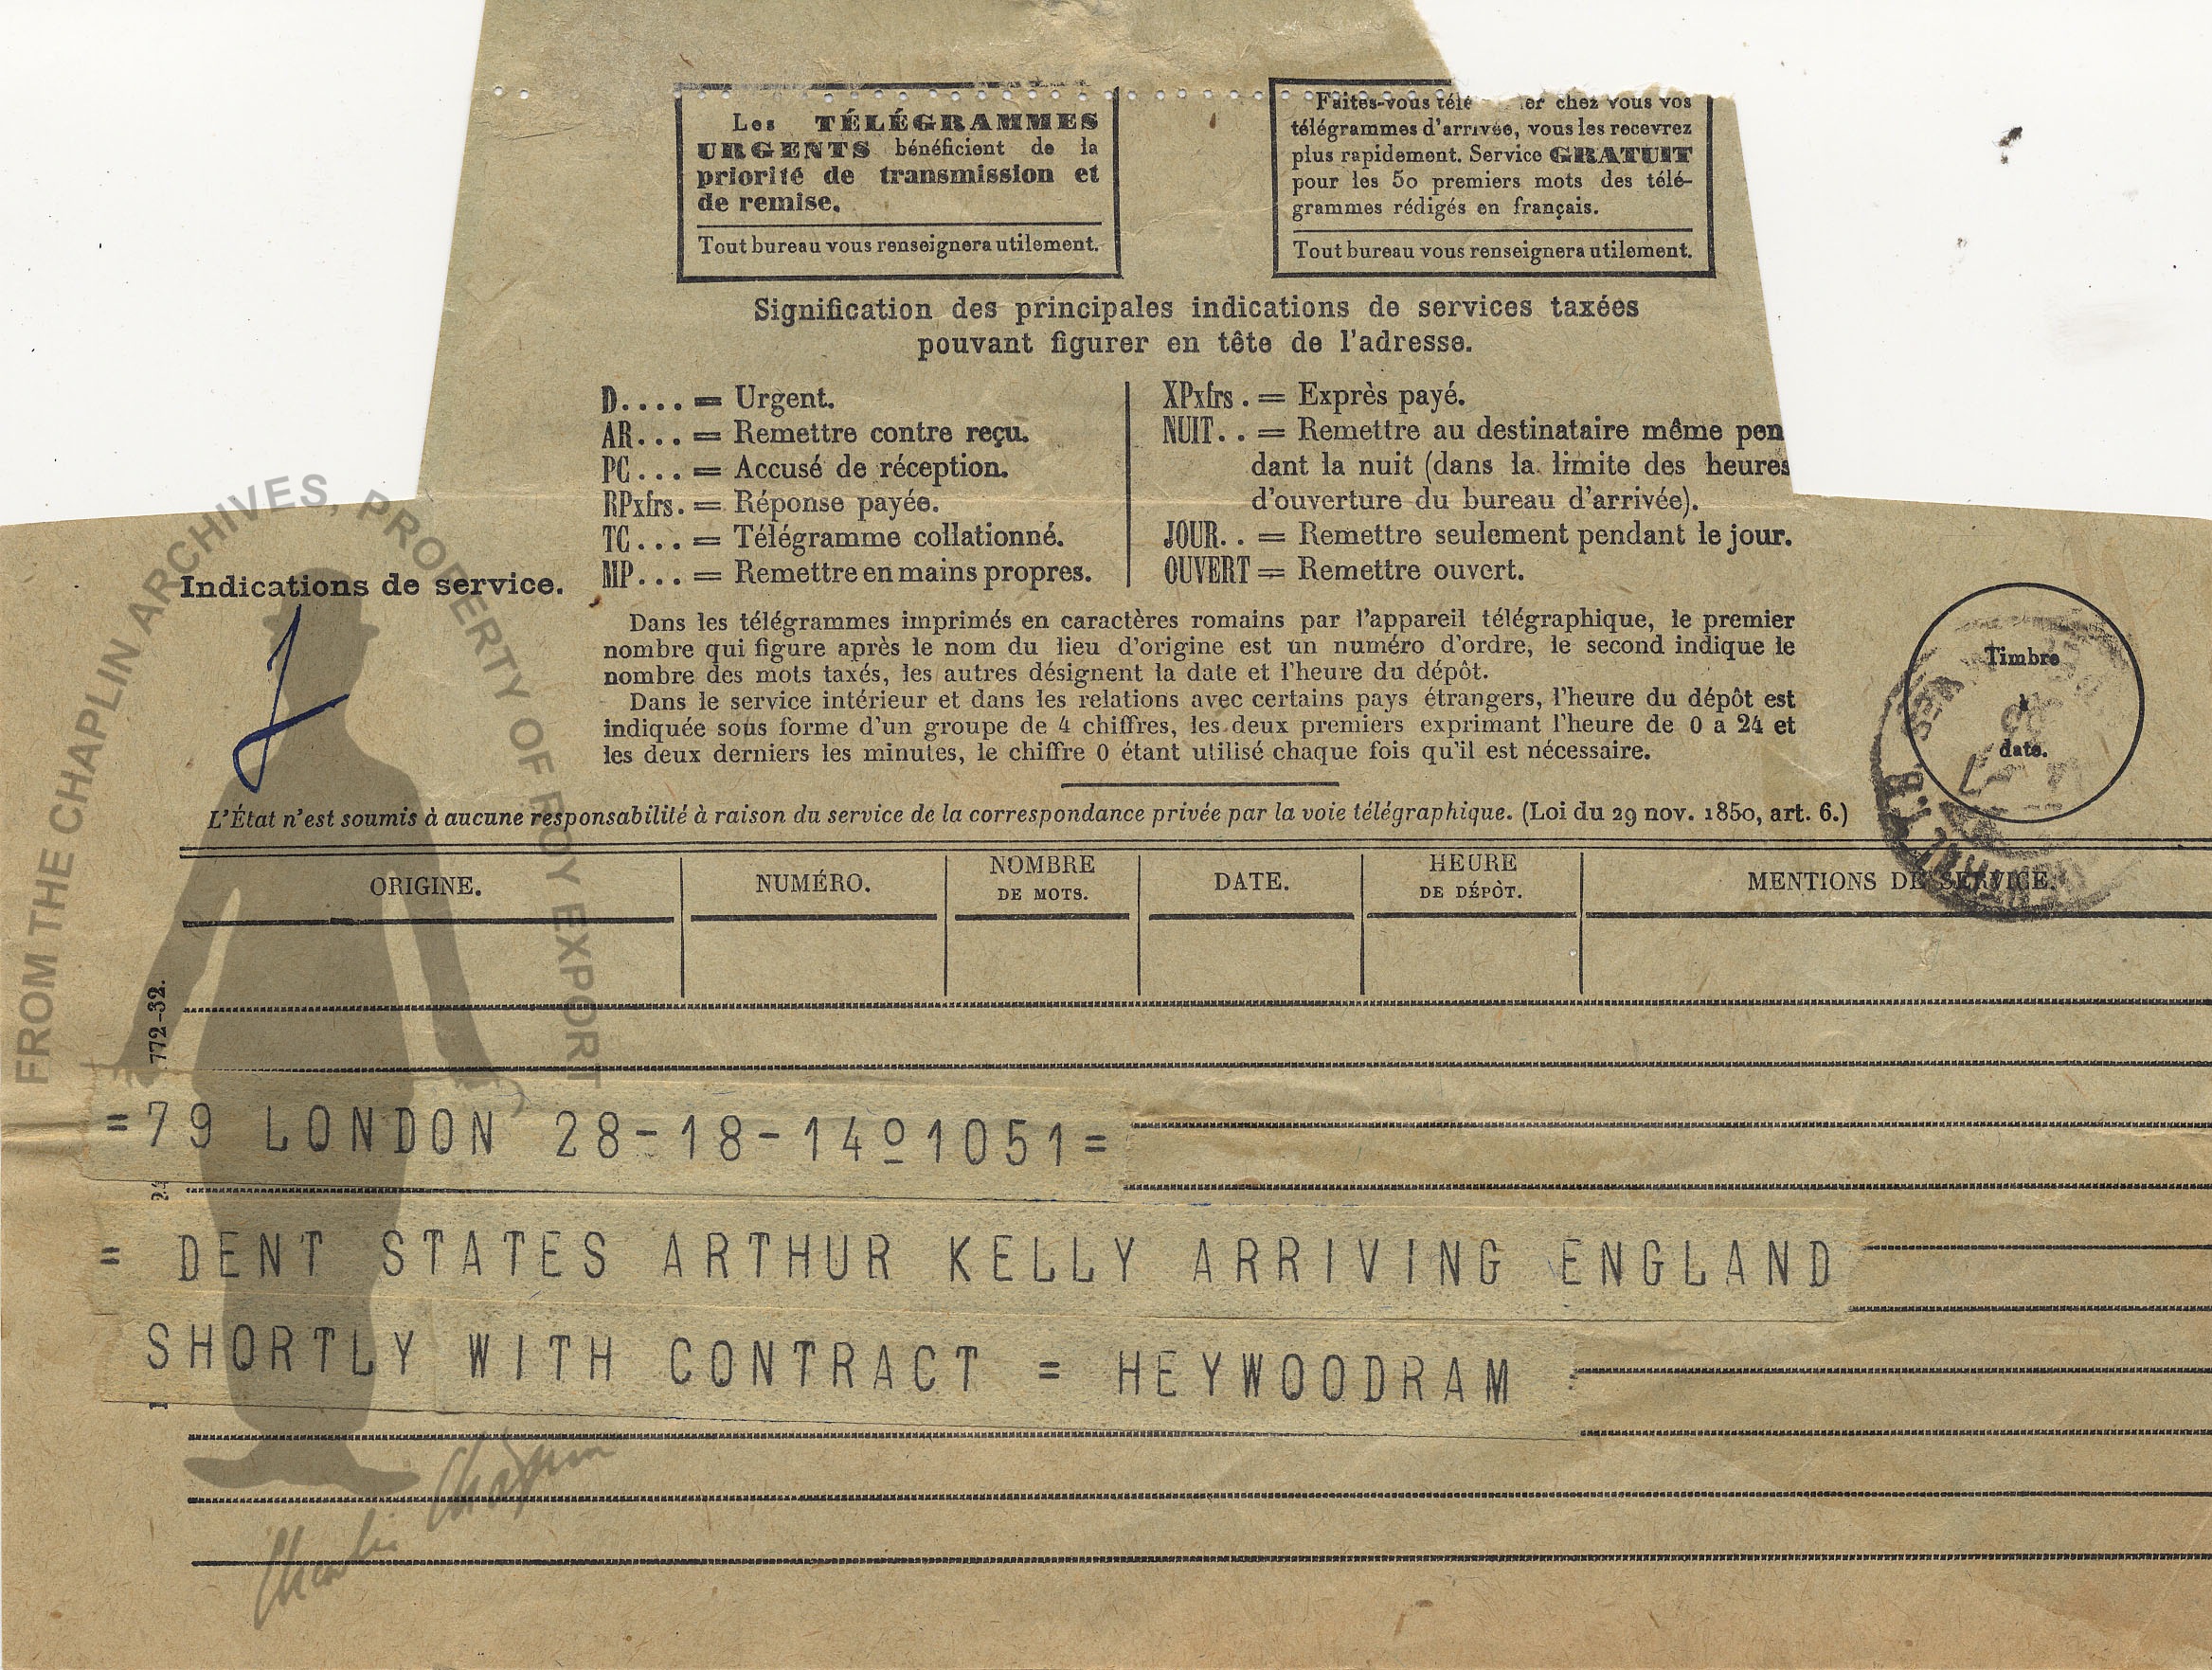 Les TÉLÉGRAMMES
URGENTS bénéficient de la
priorité de transmission et
de remise.
Tout bureau vous renseignera utilement.
Faites-vous télé er chez vous vos
télégrammes d'arrivée, vous les recevrez
plus rapidement. Service GRATUIT
pour les 50 premiers mots des télé-
grammes rédigés en français.
Tout bureau vous renseignera utilement.
Signification des principales indications de services taxées
pouvant figurer en tête de l'adresse.
D.... = Urgent.
AR... = Remettre contre reçu.
PC... = Accusé de réception.
RPxfrs. = Réponse payée.
TC... = Télégramme collationné.
MP... = Remettre en mains propres.
XPxfrs. = Exprès payé.
NUIT.. = Remettre au destinataire même pen
dant la nuit (dans la limite des heures
d'ouverture du bureau d'arrivée).
JOUR.. = Remettre seulement pendant le jour.
OUVERT = Remettre ouvert.
Indications de service.
Dans les télégrammes imprimés en caractères romains par l'appareil télégraphique, le premier
nombre qui figure après le nom du lieu d'origine est un numéro d'ordre, le second indique le
nombre des mots taxés, les autres désignent la date et l'heure du dépôt.
Dans le service intérieur et dans les relations avec certains pays étrangers, l'heure du dépôt est
indiquée sous forme d'un groupe de 4 chiffres, les deux premiers exprimant l'heure de 0 à 24 et
les deux derniers les minutes, le chiffre 0 étant utilisé chaque fois qu'il est nécessaire.
Timbre
à
date.
L'État n'est soumis à aucune responsabilité à raison du service de la correspondance privée par la voie télégraphique. (Loi du 29 nov. 1850, art. 6.)
ORIGINE.
NUMÉRO.
NOMBRE
DE MOTS.
DATE.
HEURE
DE DÉPÔT.
MENTIONS DE SERVICE.
772-32.
=79 LONDON 28-18-14º1051=
= DENT STATES ARTHUR KELLY ARRIVING ENGLAND
SHORTLY WITH CONTRACT = HEYWOODRAM
FROM THE CHAPLIN ARCHIVES, PROPERTY OF ROY EXPORT
Charlie Chaplin